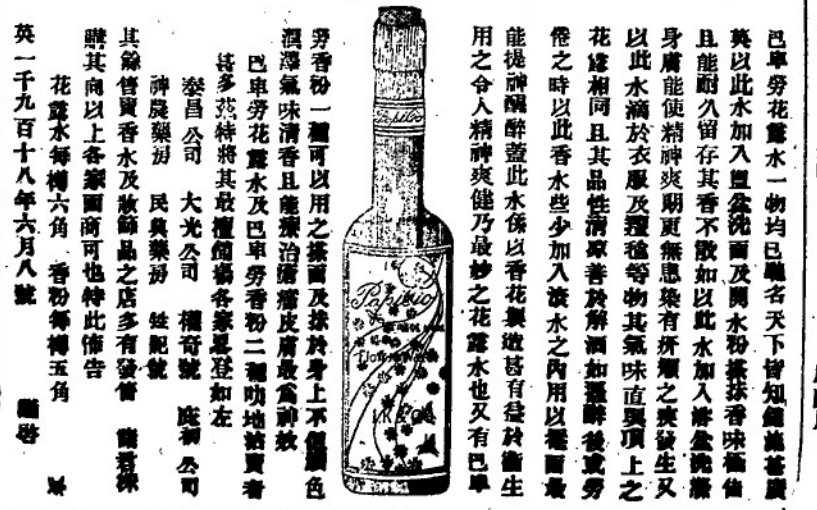 巴車勞花露水一物均已馳名天下皆知銷流甚廣
莫以此水加入盥盆洗面及開水粉搽抹香味極佳
且能耐久留存其香不散如以此水加入浴盆洗滌
身膚能使精神爽期更無患染有疥癩之
發生又
以此水滴於衣服及氈毯等物其氣味直與頂上之
花露相同且其品性清凉善於解酒如遇醉後或勞
倦之時以此香水些少加入滾水之內用以
面最
能提神醒醉蓋此水係以香花製造甚有益於衛生
用之令人精神爽健乃最妙之花露水也又有巴車
Papilio
Papilio
勞香粉一種可以用之搽面及抹於身上不但顏色
潤澤氣味清香且能療治瘡癬皮膚最為神效
巴車勞花露水及巴車勞香粉二種叻地沽賣者
甚多茲特將其最
各家
登如左
泰昌公司 大光公司 權奇號 公司
神農藥房 民興藥房 號
其餘售賣香水及妝飾品之店多有發售 諸君採
購其向以上各家面商可也特此佈告
花露水每樽六角 香粉每樽五角
英一千九百十八年六月八號 謹啓